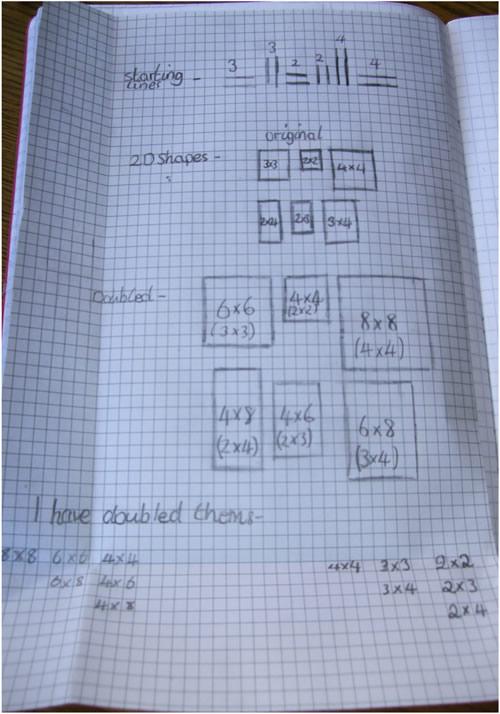 4
3 3 2 2 4
starting -
lines
original
2D Shapes -
3x3 2x2 4x4
2x4 2x3 3x4
Doubled -
6x6 4x4 8x8
(3x3) (2x2) (4x4)
4x8 4x6 6x8
(2x4) (2x3) (3x4)
I have doubled thems-
8x8 6x6 4x4 4x4 3x3 2x2
6x8 4x6 3x4 2x3
4x8 2x4